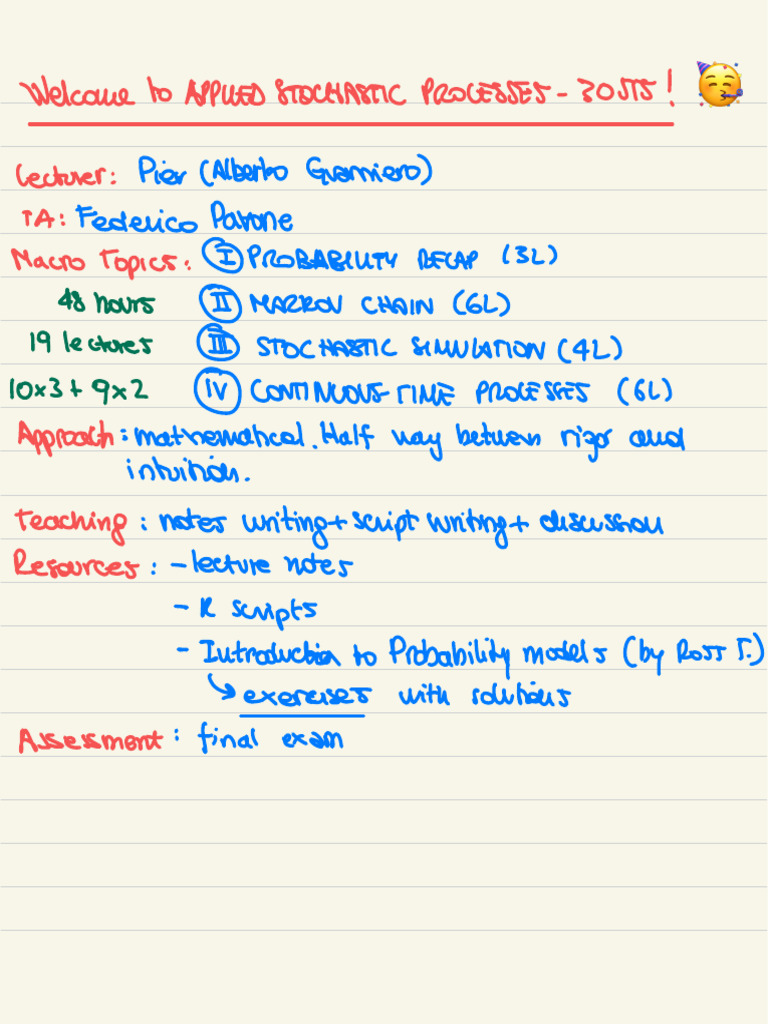 Welcome to APPLIED STOCHASTIC PROCESSES - 30515! 🥳
Lecturer: Pier (Alberto Guarniero)
TA: Federico Pavone
Macro Topics: I PROBABILITY RECAP (3L)
48 hours II MARKOV CHAIN (6L)
19 lectures III STOCHASTIC SIMULATION (4L)
10x3 + 9x2 IV CONTINUOUS-TIME PROCESSES (6L)
Approach: mathematical. Half way between rigor and
intuition.
Teaching: notes writing + script writing + discussion
Resources: - lecture notes
- R scripts
- Introduction to Probability models (by Ross S.)
↳ exercises with solutions
Assessment: final exam